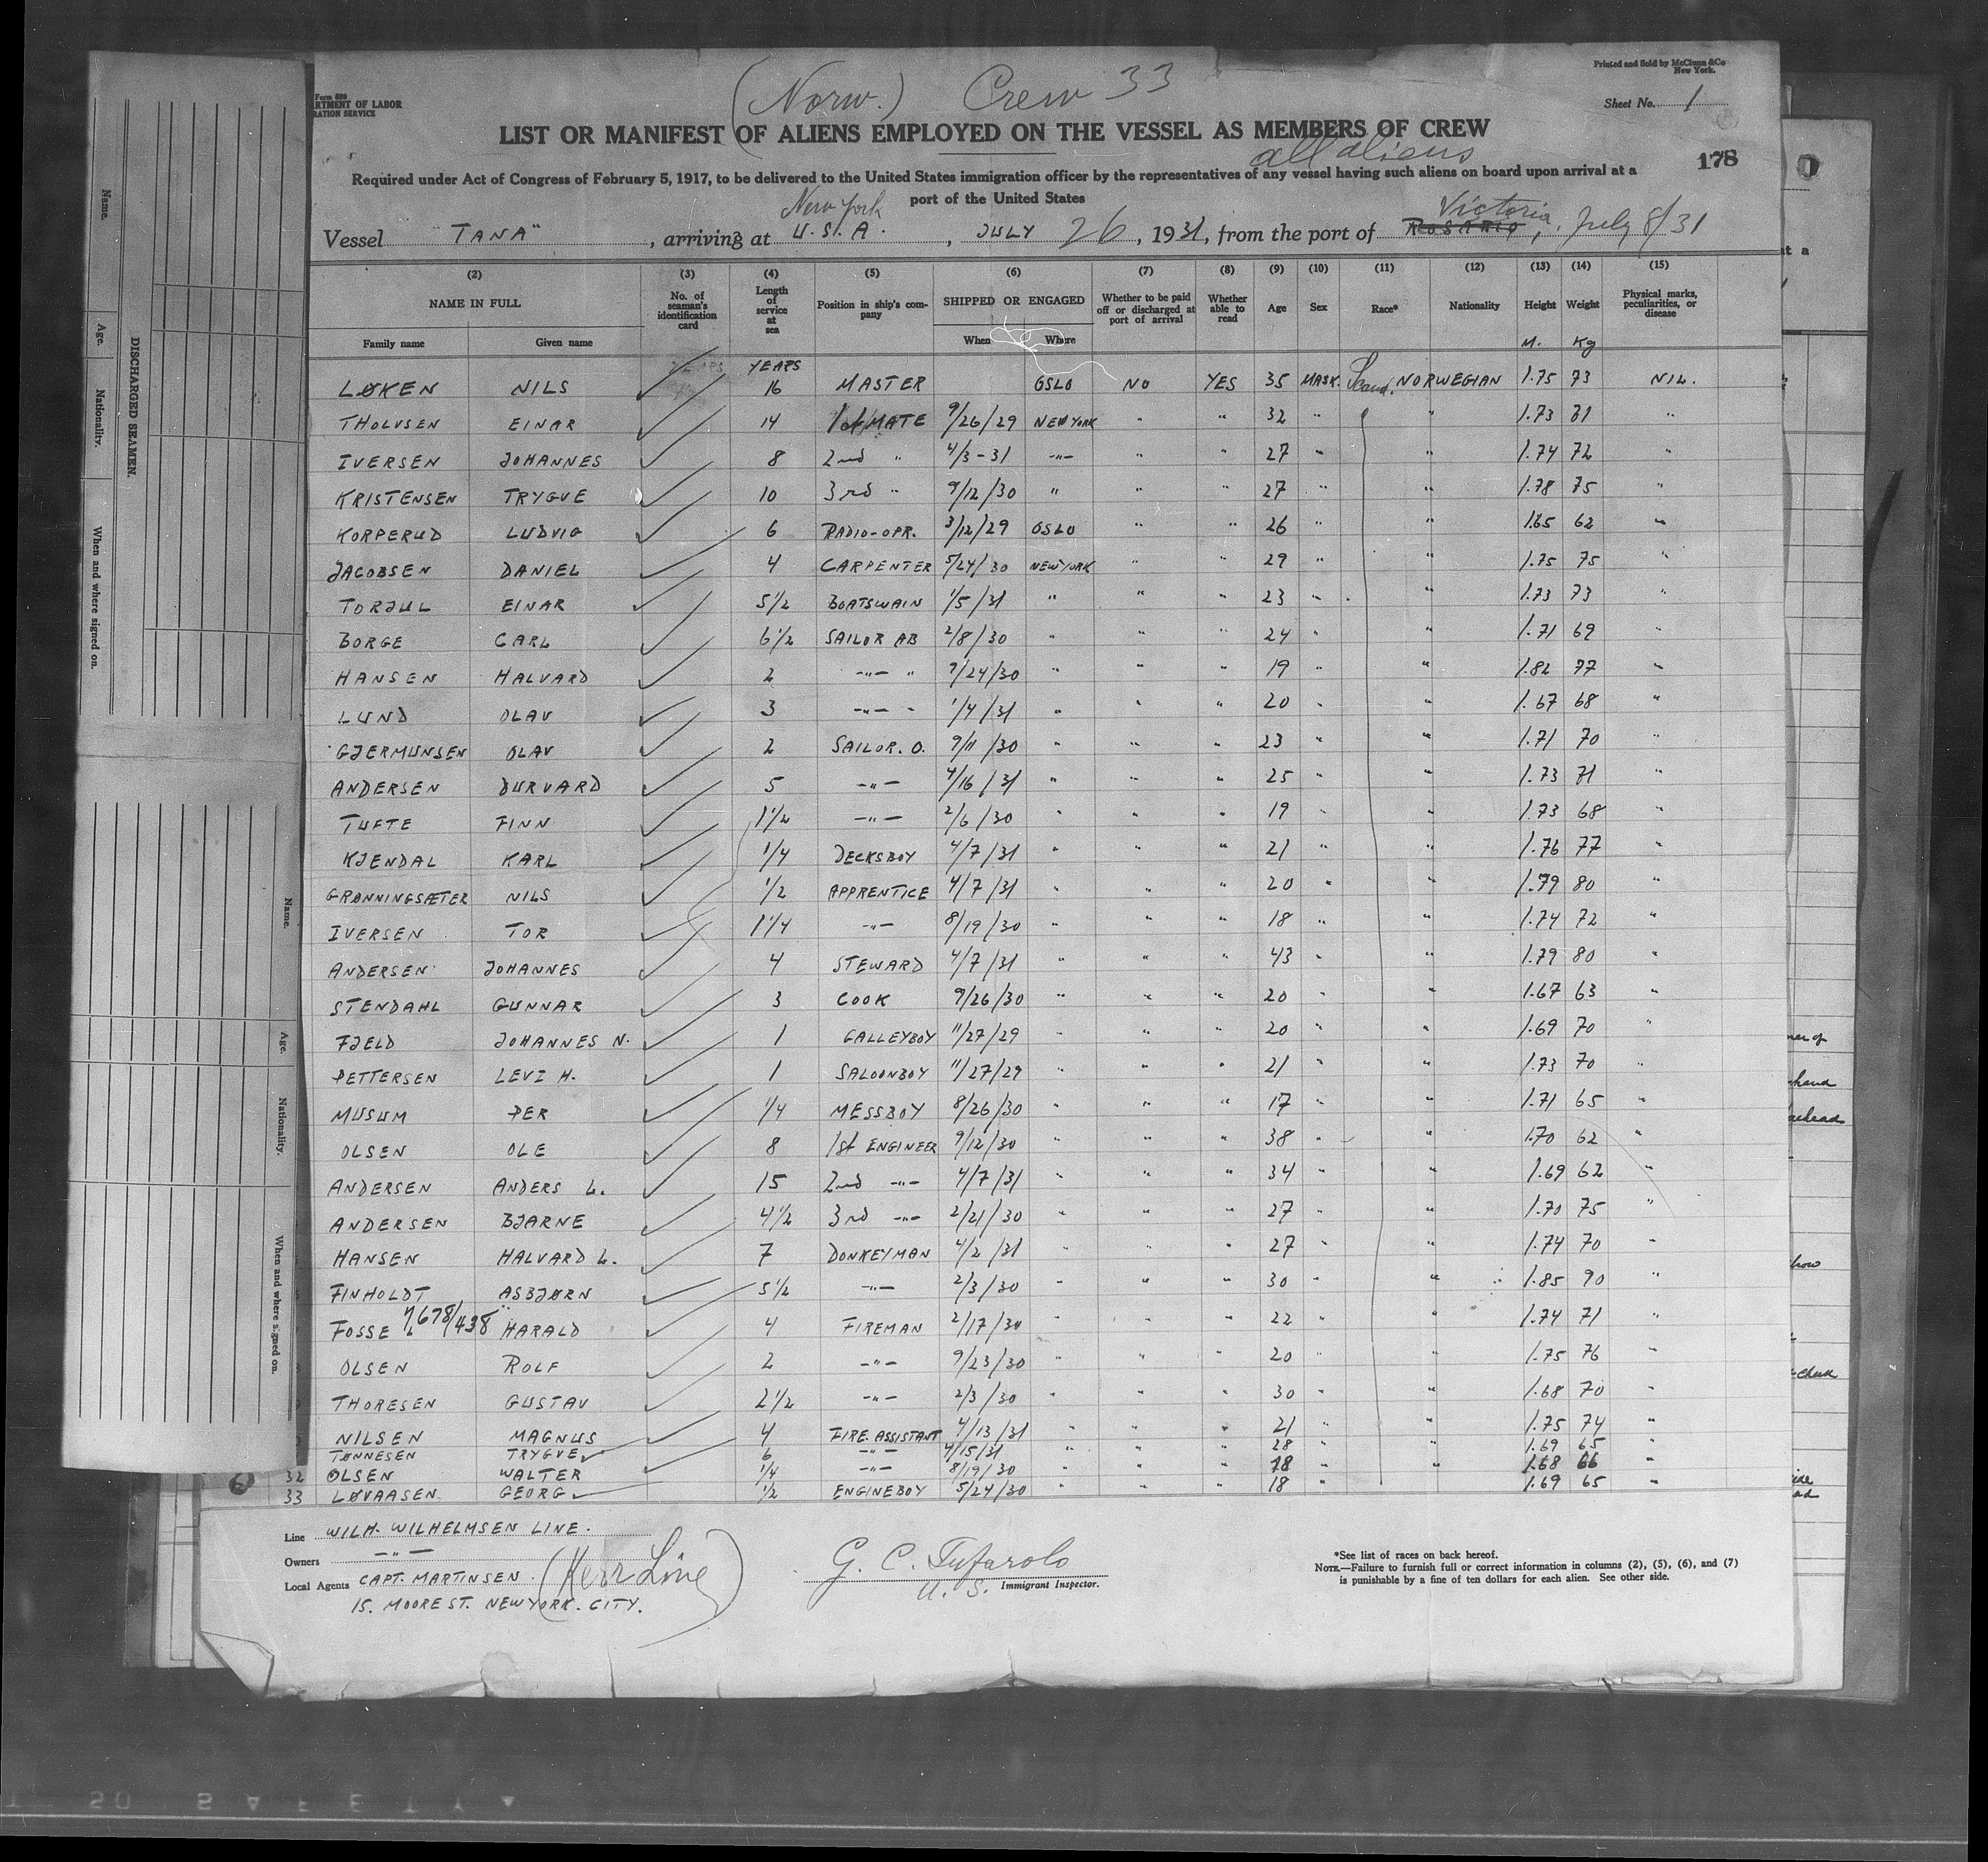 (Norw.) Crew 33
Printed and Sold by McClunn & Co
New York.
Form 680
ARTMENT OF LABOR
RATION SERVICE
Sheet No. 1
LIST OR MANIFEST OF ALIENS EMPLOYED ON THE VESSEL AS MEMBERS OF CREW
all aliens
178
Required under Act of Congress of February 5, 1917, to be delivered to the United States immigration officer by the representatives of any vessel having such aliens on board upon arrival at a
port of the United States
New York Victoria
Vessel "TANA", arriving at U.S.A., JULY 26, 1931, from the port of ROSARIO, July 8/31
(2) (3) (4) (5) (6) (7) (8) (9) (10) (11) (12) (13) (14) (15)
NAME IN FULL No. of seaman's identification card Length of service at sea Position in ship's company SHIPPED OR ENGAGED Whether to be paid off or discharged at port of arrival Whether able to read Age Sex Race* Nationality Height Weight Physical marks, peculiarities, or disease
Family name Given name When Where M. Kg
YEARS
LØKEN NILS 16 MASTER OSLO NO YES 35 MASK. Scand. NORWEGIAN 1.75 73 NIL.
THOLVSEN EINAR 14 1st MATE 9/26/29 NEW YORK " " 32 " " 1.73 71 "
IVERSEN JOHANNES 8 2nd " 4/3-31 -"- " " 27 " " 1.74 72 "
KRISTENSEN TRYGVE 10 3rd " 9/12/30 " " " 27 " " 1.78 75 "
KORPERUD LUDVIG 6 RADIO-OPR. 3/12/29 OSLO " " 26 " " 1.65 62 "
JACOBSEN DANIEL 4 CARPENTER 5/24/30 NEW YORK " " 29 " " 1.75 75 "
TORJUL EINAR 5 1/2 BOATSWAIN 1/5/31 " " " 23 " " 1.73 73 "
BORGE CARL 6 1/2 SAILOR AB 2/8/30 " " " 24 " " 1.71 69 "
HANSEN HALVARD 2 -"- " 9/24/30 " " " 19 " " 1.82 77 "
LUND OLAV 3 -"- " 1/4/31 " " " 20 " " 1.67 68 "
GJERMUNSEN OLAV 2 SAILOR. O. 9/11/30 " " " 23 " " 1.71 70 "
ANDERSEN DURVARD 5 -"- 4/16/31 " " " 25 " " 1.73 71 "
TUFTE FINN 1 1/2 -"- 2/6/30 " " " 19 " " 1.73 68 "
KJENDAL KARL 1/4 DECKSBOY 4/7/31 " " " 21 " " 1.76 77 "
GRØNNINGSÆTER NILS 1/2 APPRENTICE 4/7/31 " " " 20 " " 1.79 80 "
IVERSEN TOR 1 1/4 -"- 8/19/30 " " " 18 " " 1.74 72 "
ANDERSEN JOHANNES 4 STEWARD 4/7/31 " " " 43 " " 1.79 80 "
STENDAHL GUNNAR 3 COOK 9/26/30 " " " 20 " " 1.67 63 "
FJELD JOHANNES N. 1 GALLEYBOY 11/27/29 " " " 20 " " 1.69 70 "
PETTERSEN LEVI H. 1 SALOONBOY 11/27/29 " " " 21 " " 1.73 70 "
MUSUM PER 1/4 MESSBOY 8/26/30 " " " 17 " " 1.71 65 "
OLSEN OLE 8 1st ENGINEER 9/12/30 " " " 38 " " 1.70 62 "
ANDERSEN ANDERS L. 15 2nd -"- 4/7/31 " " " 34 " " 1.69 62 "
ANDERSEN BJARNE 4 1/2 3rd -"- 2/21/30 " " " 27 " " 1.70 75 "
HANSEN HALVARD L. 7 DONKEYMAN 4/2/31 " " " 27 " " 1.74 70 "
FINHOLDT ASBJØRN 5 1/2 -"- 2/3/30 " " " 30 " " 1.85 90 "
FOSSE 7678/438 HARALD 4 FIREMAN 2/17/30 " " " 22 " " 1.74 71 "
OLSEN ROLF 2 -"- 9/23/30 " " " 20 " " 1.75 76 "
THORESEN GUSTAV 2 1/2 -"- 2/3/30 " " " 30 " " 1.68 70 "
NILSEN MAGNUS 4 FIRE ASSISTANT 4/13/31 " " " 21 " " 1.75 74 "
TØNNESEN TRYGVE 6 -"- 4/15/31 " " " 28 " " 1.69 65 "
32 OLSEN WALTER 1/4 -"- 8/19/30 " " " 18 " " 1.68 66 "
33 LØVAASEN GEORG 1/2 ENGINEBOY 5/24/30 " " " 18 " 1.69 65 "
Line WILH. WILHELMSEN LINE.
Owners -"-
Local Agents CAPT. MARTINSEN. (Kerr Line)
15. MOORE ST. NEW YORK. CITY.
G. C. Tufarolo
U. S. Immigrant Inspector.
*See list of races on back hereof.
NOTE.—Failure to furnish full or correct information in columns (2), (5), (6), and (7)
is punishable by a fine of ten dollars for each alien. See other side.
DISCHARGED SEAMEN.
Name. Age. Nationality. When and where signed on.
Name. Age. Nationality. When and where signed on.
SAFETY